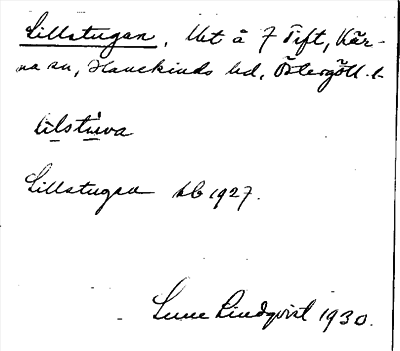 Lillstugan, Ut å 7 Tift, Kär-
na sn, Hanekinds hd, Östergötl. l.
lilstuva
Lillstugan Ab 1927.
Sune Lindqvist 1930.